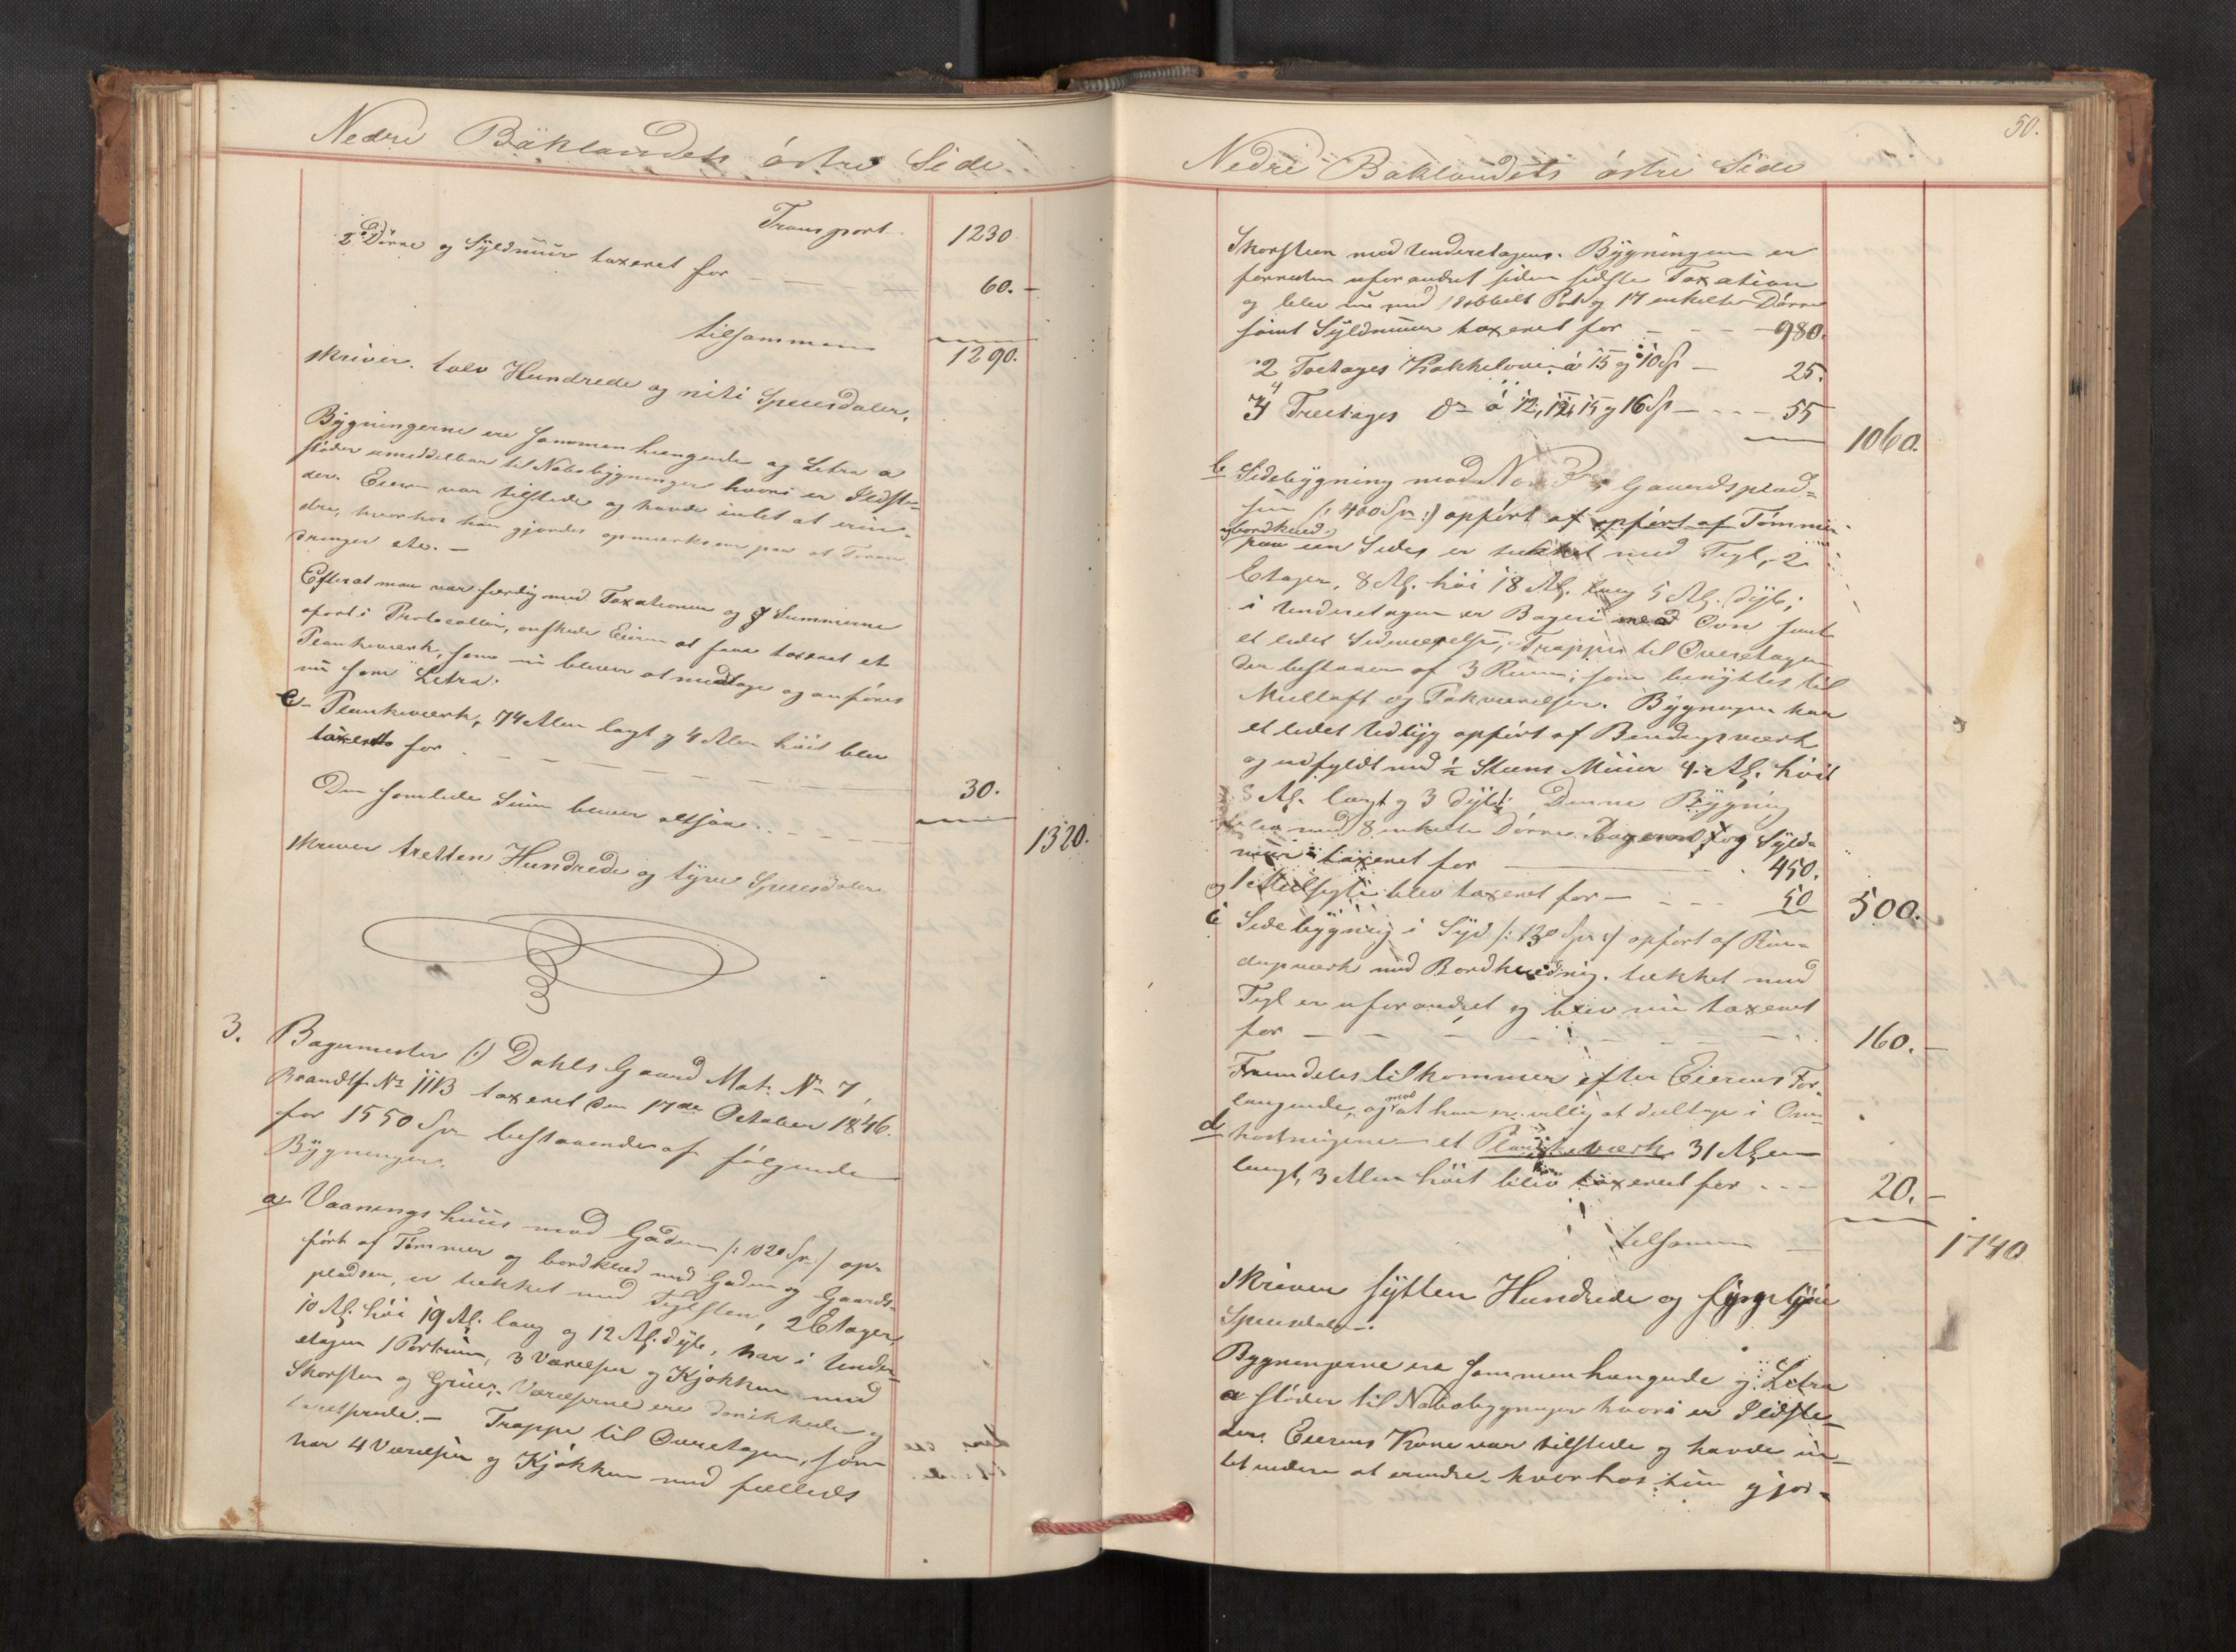 Nedre Bäklandets östre Side
Transport 1230
2 Dörre og Syldmuur taxeret for — — — 60.-
tilsammen 1290.
skriver tolv Hundrede og niti Speciesdaler.
Bygningerne ere sammenhængende og Litra a
støder umiddelbar til Nabobygninger hvori er Ildste-
der. Eieren var tilstede og havde intet at erin-
dre, hvorhos han gjordes opmærksom paa at Foran-
dringer etc. —
Efterat man var færdig med Taxationen og Summerne
opført i Protocollen, ønskede Eieren at faae taxeret et
Plankeværk, som nu bliver at medtage og anføres
nu som Litra:
c- Plankeværk, 74 Alen langt og 4 Alen höit blev
taxeret for — — — — 30.
Den samlede Sum bliver altsaa — — — 1320.
skriver tretten Hundrede og tyve Speciesdaler.
3. Bagermester Dahls Gaard Mat. No 7,
Brandtf. No 11B taxeret den 17de October 1846.
for 1550 Spr bestaaende af følgende
Bygninger.
a Vaaningshuus mod Gaden /: 1020 Spr :/ op-
ført af Tömmer og bordklæd mod Gaden og Gaards-
pladsen, er tækket med Teglsten, 2 Etager,
10 Al. höi 19 Al. lang og 12 Al. dyb, har i Under-
etagen 1 Portrum, 3 Værelser og Kjökken med
Skorsten og Gruer. Værelserne ere panelede og
betrukne. — Trappe til Overetagen, som
har 4 Værelser og Kjökken med fælleds
50.
Nedre Baklandets östre Side
Skorsteen med Underetagens. Bygningen er
forresten uforandret siden sidste Taxation
og blev nu med 1 dobbelt Port og 17 enkelte Dörre
samt Syldmuur taxeret for — — — 980.
2 Toetages Kakkelovne á 15 og 10 Sp — 25.
4 Treetages Do á 12, 12, 15 og 16 Sp — — — 55
1060.
b Sidebygning mod Nord i Gaardsplad-
sen /: 400 Spr :/ opfört af opfört af Tömmer
og bordklæd
paa een Side, er tækket med Tegl, 2
Etager, 8 Al. höi 18 Al. lang 5 Al. dyb;
i Underetagen er Bageri med Ovn samt
et lidet Sideværelse, Trappe til Overetagen
der bestaaer af 3 Rum, som benyttes til
Melloft og Takværelser. Bygningen har
et lidet Udbyg opfört af Bindingsværk
og udfyldt med ½ Steens Muur 4. Al. höit
8 Al. langt og 3 dybt. Denne Bygning
blev med 8 enkelte Dörre Bagerovn og Syld-
muur taxeret for — 450.
og 1 Melsigte blev taxeret for — — — 50 500.
c Sidebygning i Syd /: 130 Spr :/ opfört af Bin-
dingsværk med Bordklædning, tækket med
Tegl er uforandret og blev nu taxeret
for — — — — 160.-
Fremdeles tilkommer efter Eierens For-
langende, og mod at han er villig at deeltage i Om-
d kostningerne et Plankeværk 31 Alen
langt, 3 Alen höit blev taxeret for — — — 20.-
tilsammen — 1740
skriver sytten Hundrede og fyrgetyve
Speciesdaler.
Bygningerne ere sammenhængende og Litra
a støder til Nabobygninger hvori er Ildste-
der. Eierens Kone var tilstede og havde in-
tet videre at erindre, hvorhos hun gjor-